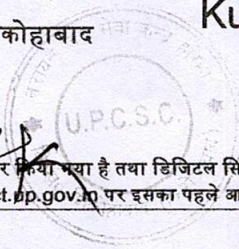 Ku
कोहाबाद
U.P.C.S.C.
र किया गया है तथा डिजिटल सि
ct.up.gov.in पर इसका पहले आ